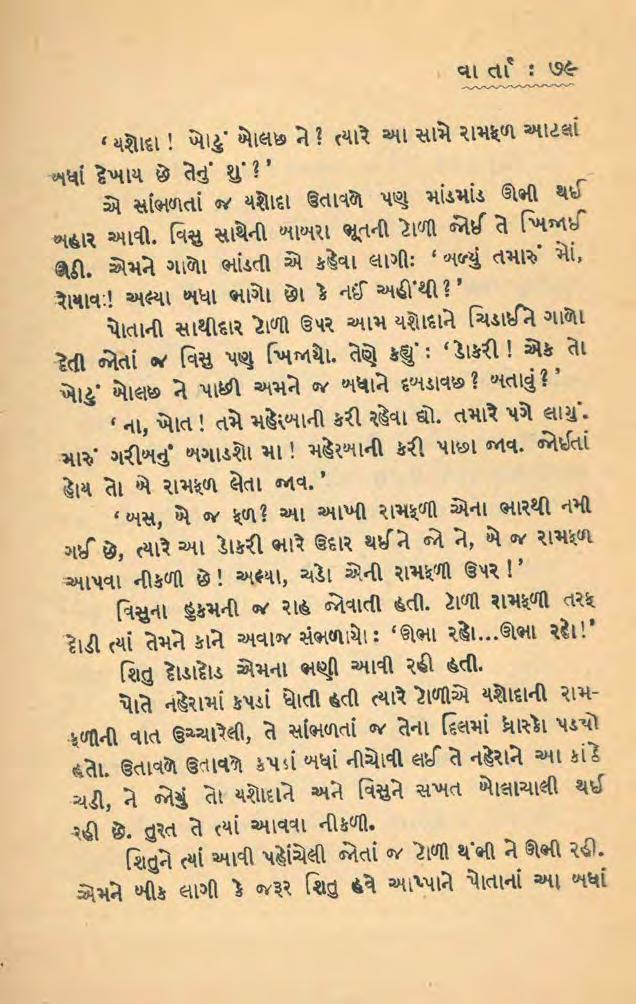 વાર્તા : ૭૯
‘ યશોદા ! ખોટું બોલછ ને ? ત્યારે આ સામે રામફળ આટલાં
બધાં દેખાય છે તેનું શું ? ’
એ સાંભળતાં જ યશોદા ઉતાવળે પણ માંડમાંડ ઊભી થઈ
બહાર આવી. વિસુ સાથેની બાબરા ભૂતની ટોળી જોઈ તે ખિજાઈ
ઊઠી. એમને ગાળો ભાંડતી એ કહેવા લાગીઃ ‘ બળ્યું તમારું મોં,
રોયાવ ! અલ્યા બધા ભાગો છો કે નઈ અહીંથી ? ’
પોતાની સાથીદાર ટોળી ઉપર આમ યશોદાને ચિડાઈને ગાળો
દેતી જોતાં જ વિસુ પણ ખિજાયો. તેણે કહ્યું : ‘ ડોકરી ! એક તો
ખોટું બોલછ ને પાછી અમને જ બધાને દબડાવછ ? બતાવું ? ’
‘ ના, બોત ! તમે મહેરબાની કરી રહેવા દ્યો. તમારે પગે લાગું.
મારું ગરીબનું બગાડશો મા ! મહેરબાની કરી પાછા જાવ. જોઈતાં
હોય તો બે રામફળ લેતા જાવ. ’
‘ બસ, બે જ ફળ ? આ આખી રામફળી એના ભારથી નમી
ગઈ છે, ત્યારે આ ડોકરી ભારે ઉદાર થઈને જો ને, બે જ રામફળ
આપવા નીકળી છે ! અલ્યા, ચડો એની રામફળી ઉપર ! ’
વિસુના હુકમની જ રાહ જોવાતી હતી. ટોળી રામફળી તરફ
દોડી ત્યાં તેમને કાને અવાજ સંભળાયો : ‘ ઊભા રહો...ઊભા રહો ! ’
શિતુ દોડાદોડ એમના ભણી આવી રહી હતી.
પોતે નહેરામાં કપડાં ધોતી હતી ત્યારે ટોળીએ યશોદાની રામ-
ફળીની વાત ઉચ્ચારેલી, તે સાંભળતાં જ તેના દિલમાં ધ્રાસ્કો પડ્યો
હતો. ઉતાવળે ઉતાવળે કપડાં બધાં નીચોવી લઈ તે નહેરાને આ કાંઠે
ચડી, ને જોયું તો યશોદાને અને વિસુને સખત બોલાચાલી થઈ
રહી છે. તુરત તે ત્યાં આવવા નીકળી.
શિતુને ત્યાં આવી પહોંચેલી જોતાં જ ટોળી થંભી ને ઊભી રહી.
એમને બીક લાગી કે જરૂર શિતુ હવે આપ્પાને પોતાનાં આ બધાં